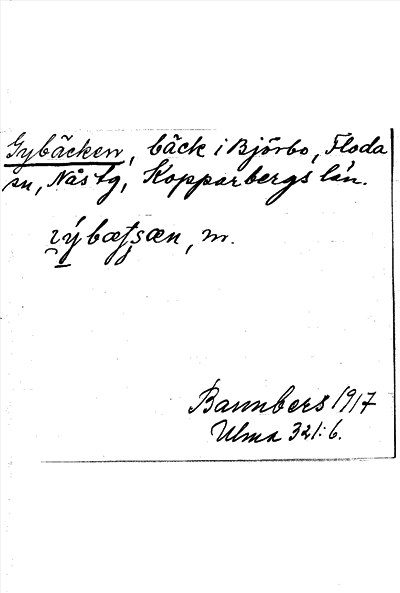 Gybäcken, bäck i Björbo, Floda
sn, Nås tg, Kopparbergs län.
Bannbers 1917
Ulma 321:6.